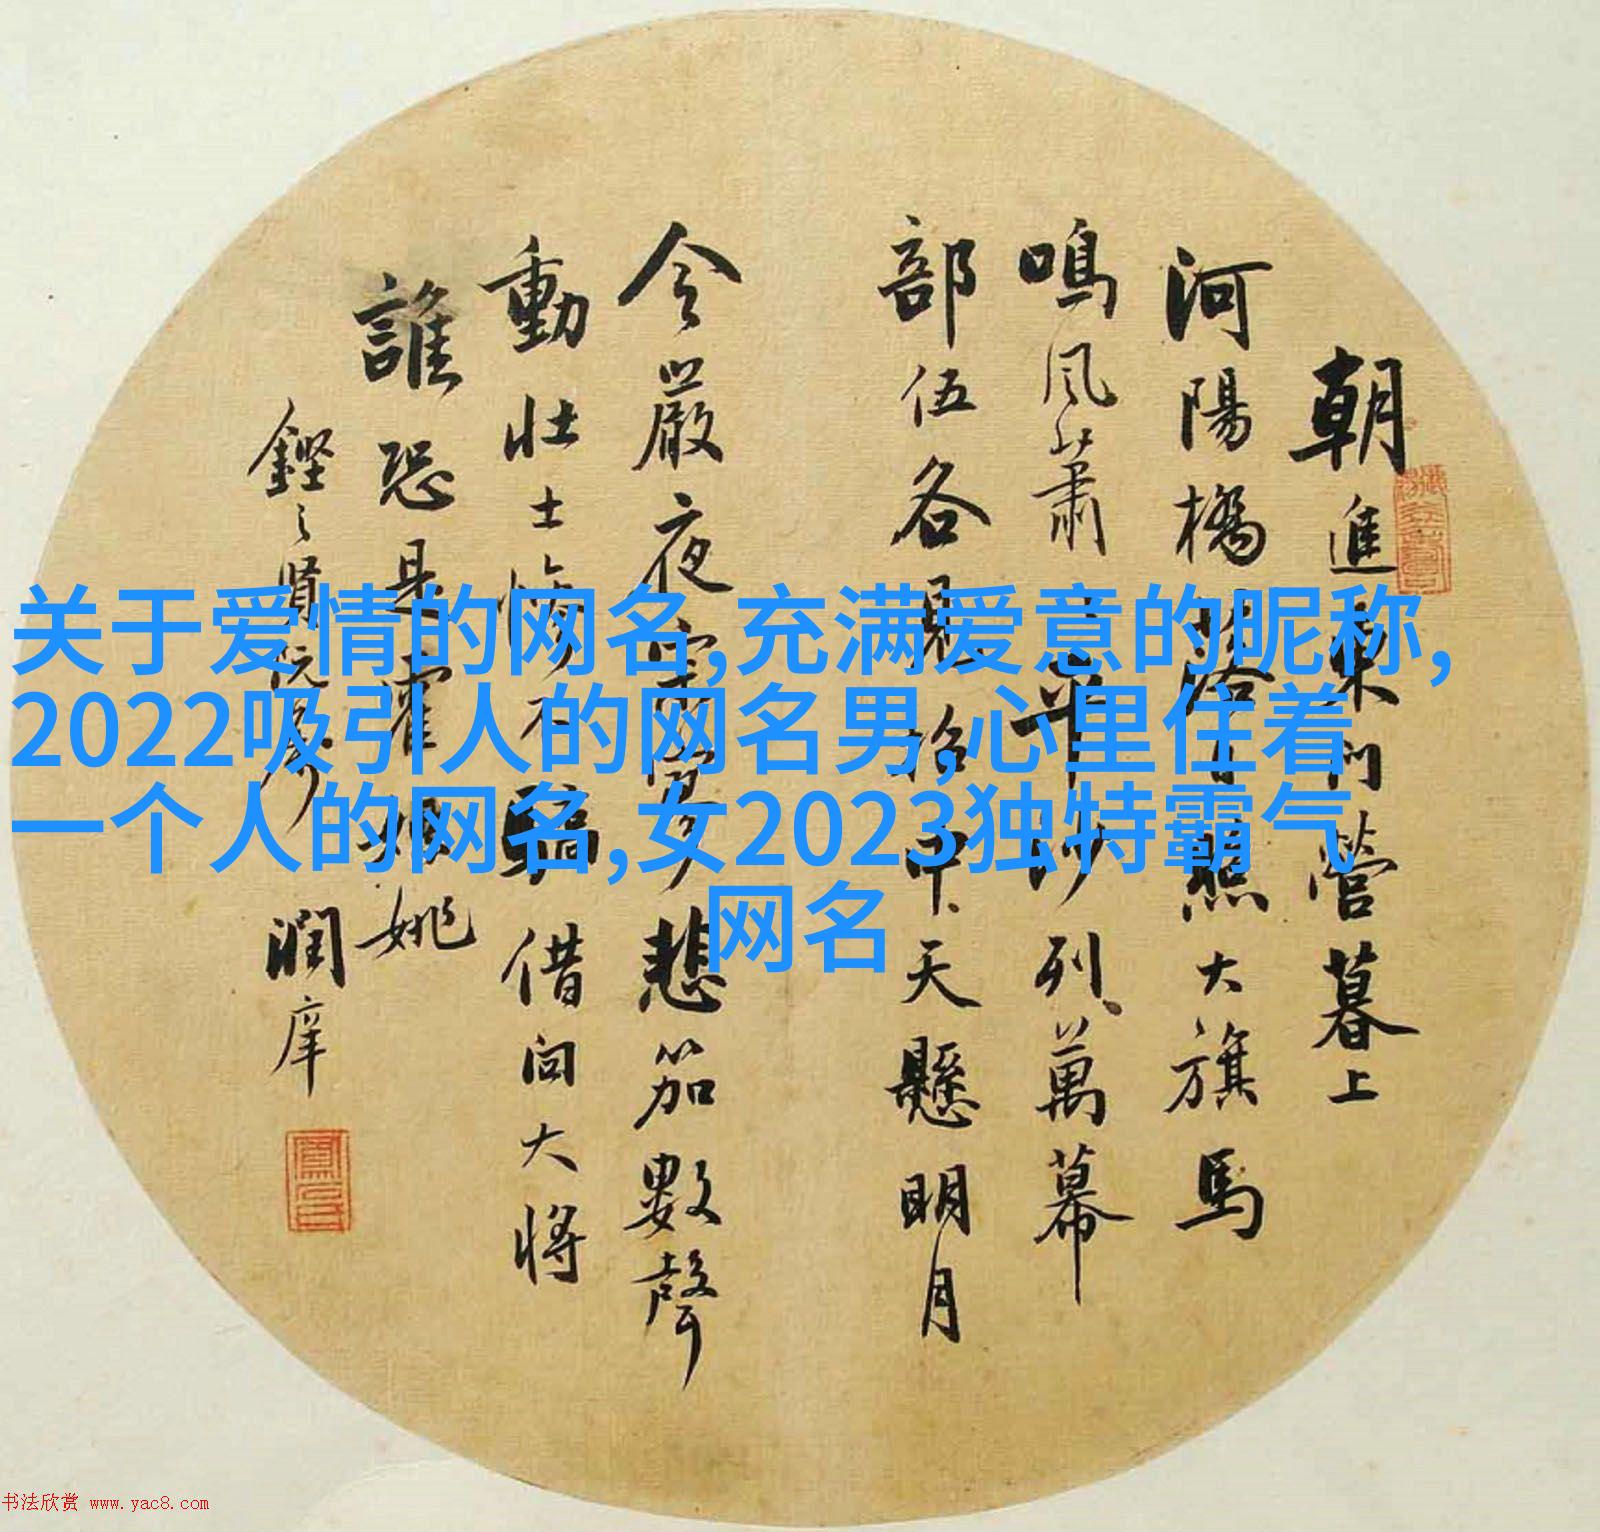 朝進東門營暮上
河陽橋落日照大旗馬
鳴風蕭平沙列萬幕
部伍各見招中天懸明月
令嚴夜寂寥悲笳數聲
動壯士慘不驕借問大將
誰恐是霍嫖姚
賢阮
潤庠
关于爱情的网名,充满爱意的昵称,
2022吸引人的网名男,心里住着
一个人的网名,女2023独特霸气
网名
书法欣赏 www.yac8.com